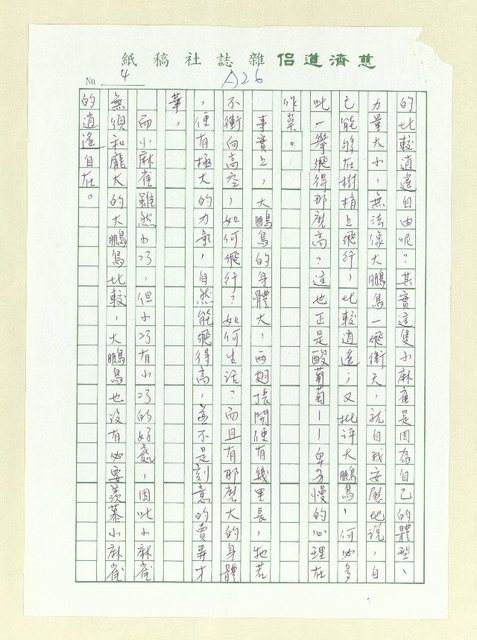 慈濟道侶雜誌社稿紙
No. 4
A26
的比較逍遙自由呢?其實這隻小麻雀是因為自己的體型、
力量大小,無法像大鵬鳥一飛衝天,就自我安慰地說,自
己能夠在樹梢上飛行,比較逍遙;又批評大鵬鳥,何必多
此一舉飛得那麼高?這也正是酸葡萄——卑予慢的心理在
作祟。
事實上,大鵬鳥的身體大,兩翅張開便有幾里長,牠若
不衝向高空,如何飛行?如何生活?而且有那麼大的身體
,便有極大的力氣,自然能飛得高,並不是刻意的賣弄才
華。
而小麻雀雖然小巧,但小巧有小巧的好處,因此小麻雀
無須和龐大的大鵬鳥比較,大鵬鳥也沒有必要羨慕小麻雀
的逍遙自在。